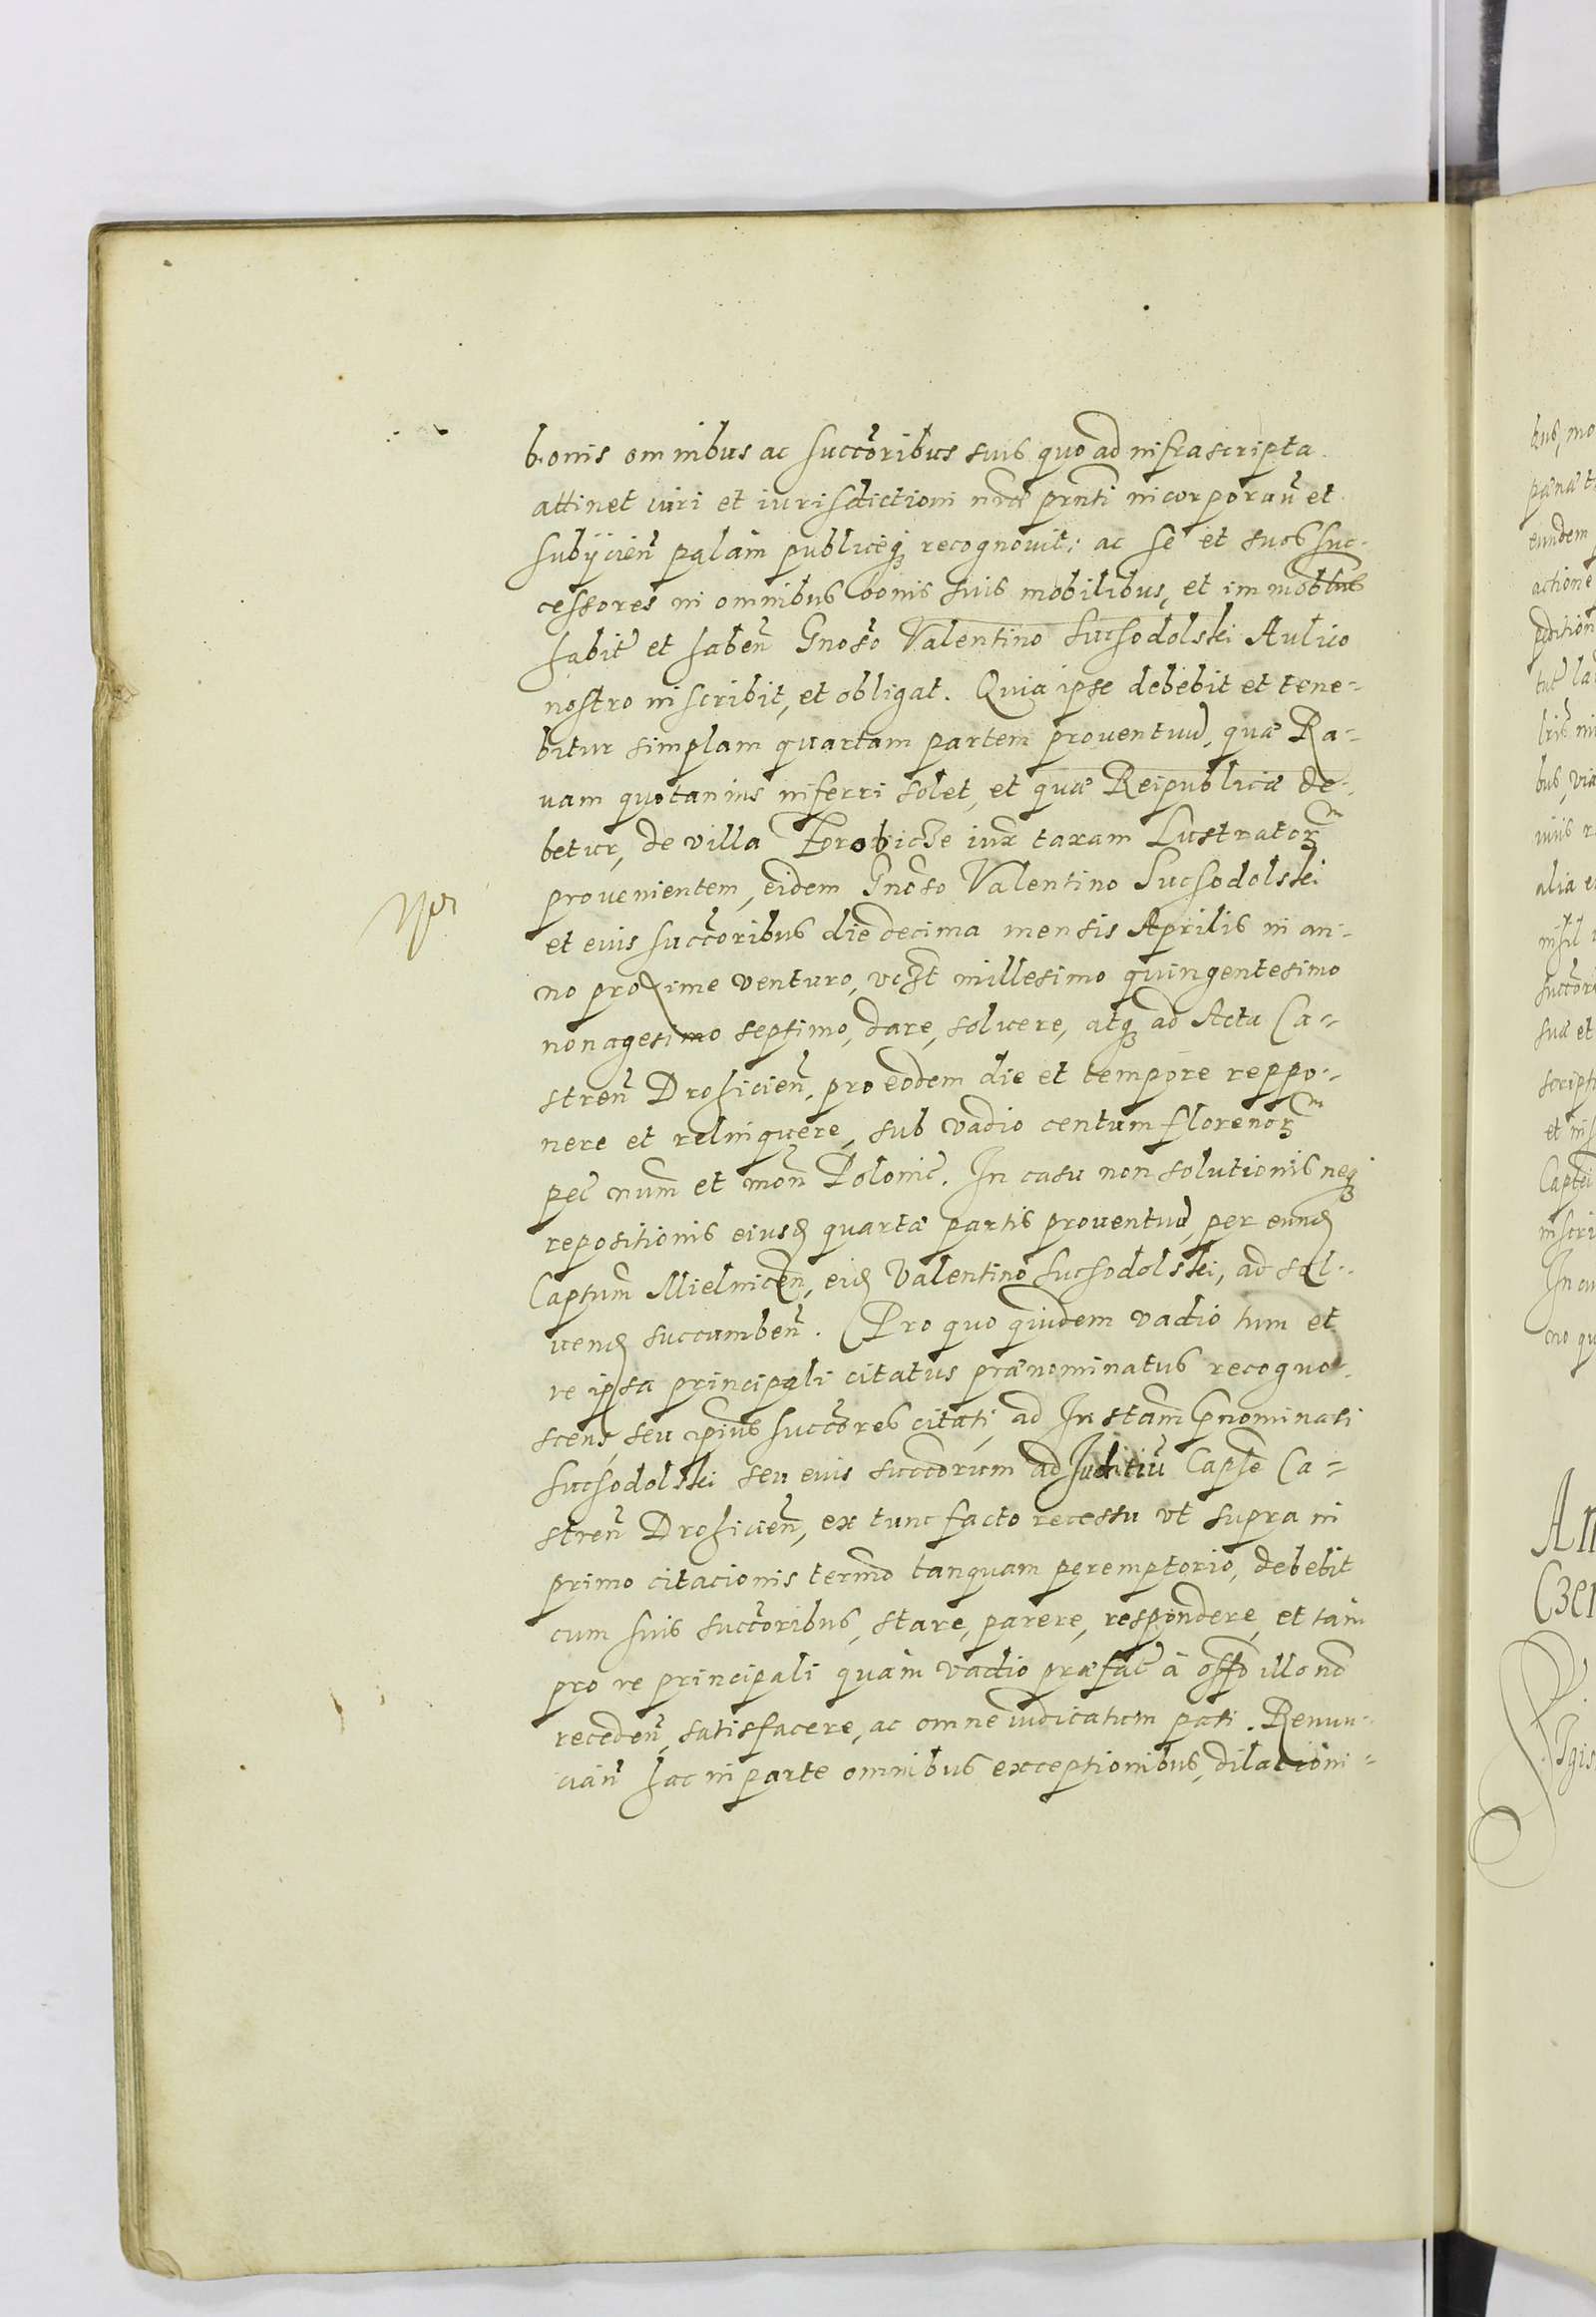 bonis omnibus ac succōribus suis quo ad infrascripta
attinet iuri et iurisdictioni nrae prnti incorporan̄ et
subÿcien̄ palam publiceq; recognouit: ac se et suos suc-
cessores in omnibus bonis suis mobilibus, et immoblibus
habit̄ et haben̄ Gnoso Valentino Suchodolski Aulico
nostro inscribit, et obligat. Quia ipse debebit et tene-
bitur simplam quartam partem prouentuū, quæ Ra-
uam quotannis inferri solet, et quæ Reipublicæ de-
betur, de villa iux taxam Lustrator̄
prouenientem, eidem Gnoso Valentino Suchodolski
et eius succōribus die decima mensis Aprilis in an-
no proxime venturo, vczt millesimo quingentesimo
nonagesimo septimo, dare, soluere, atq; ad Acta Ca-
stren̄ Drohicien̄, pro eodem die et tempore reppo-
nere et relinquere, sub vadio centum florenor̄
pec̄ num̄ et mon̄ Polonic̄. In casu non solutionis neq;
repositionis eiusd quartæ partis prouentuū, per eund
Captum̄ Mielnicen̄, eid Valentino Suchodolski, ad sol-
uend succumben̄. Pro quo quidem vadio tum et
re ipsa principali citatus prænominatus recogno-
scens, seu ipius succōres citati, ad Instam̄ pnominati
Suchodolski seu eius succōrum ad Juditiū Capte Ca-
stren̄ Drohicien̄, ex tunc facto recessu vt supra in
primo citacionis termo tanquam peremptorio, debebit
cum suis succōribus, stare, parere, respondere, et tam
pro re principali quàm vadio præfat̄ à offo illo nō
receden̄, satisfacere, ac omne iudicatum pati. Renun-
cian̄ hac in parte omnibus exceptionibus, dilationi-